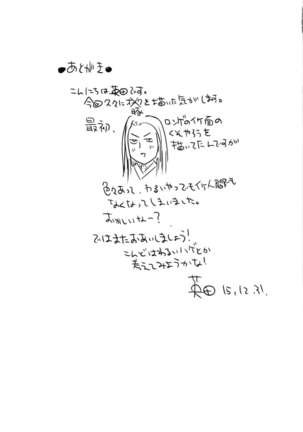 ●あとがき●
こんにちは英田です。
今回久々にオヤジを描いた気がします。
最初、
ロンゲのイケ面の
くそやろうを
描いてたんですが
色々あって、わるいやつでもイケ人間でも
なくなってしまいました。
おかしいなー?
ではまたおあいしましょう!
こんどはわるいハゲとか
考えてみようかな!
英田 15.12.31.